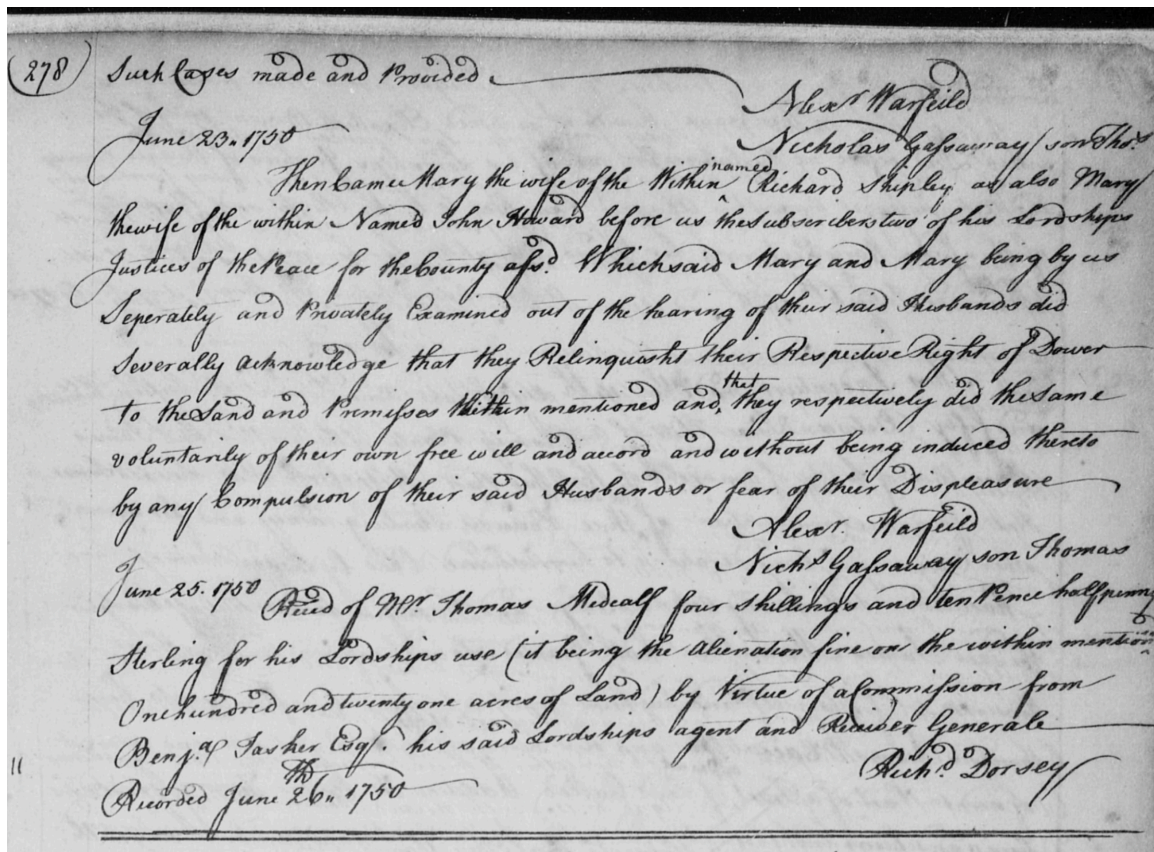 (278) Such Cases made and Provided
Alexr Warfeild
June 23. 1750
Nicholas Gassaway son Thos.
Then Came Mary the wife of the Within named Richard Shipley as also Mary
the wife of the within Named John Howard before us the Subscribers two of his Lordships
Justices of the Peace for the County afsd. Which said Mary and Mary being by us
Seperately and Privately Examined out of the hearing of their said Husbands did
Severally acknowledge that they Relinquasht their Respective Right of Dower
to the Land and Premisses Within mentioned and that they respectively did the same
voluntarily of their own free will and accord and without being induced thereto
by any Compulsion of their said Husbands or fear of their Displeasure
Alexr. Warfeild
Nichs Gassaway son Thomas
June 25. 1750
Recd of Mr Thomas Medcalf four shillings and ten Pence halfpenny
Sterling for his Lordships use (it being the alienation fine on the within mention
One hundred and twenty one acres of Land) by Virtue of a Commission from
Benja. Tasker Esqr. his said Lordships agent and Receiver Generale
Richd. Dorsey
Recorded June 26th 1750